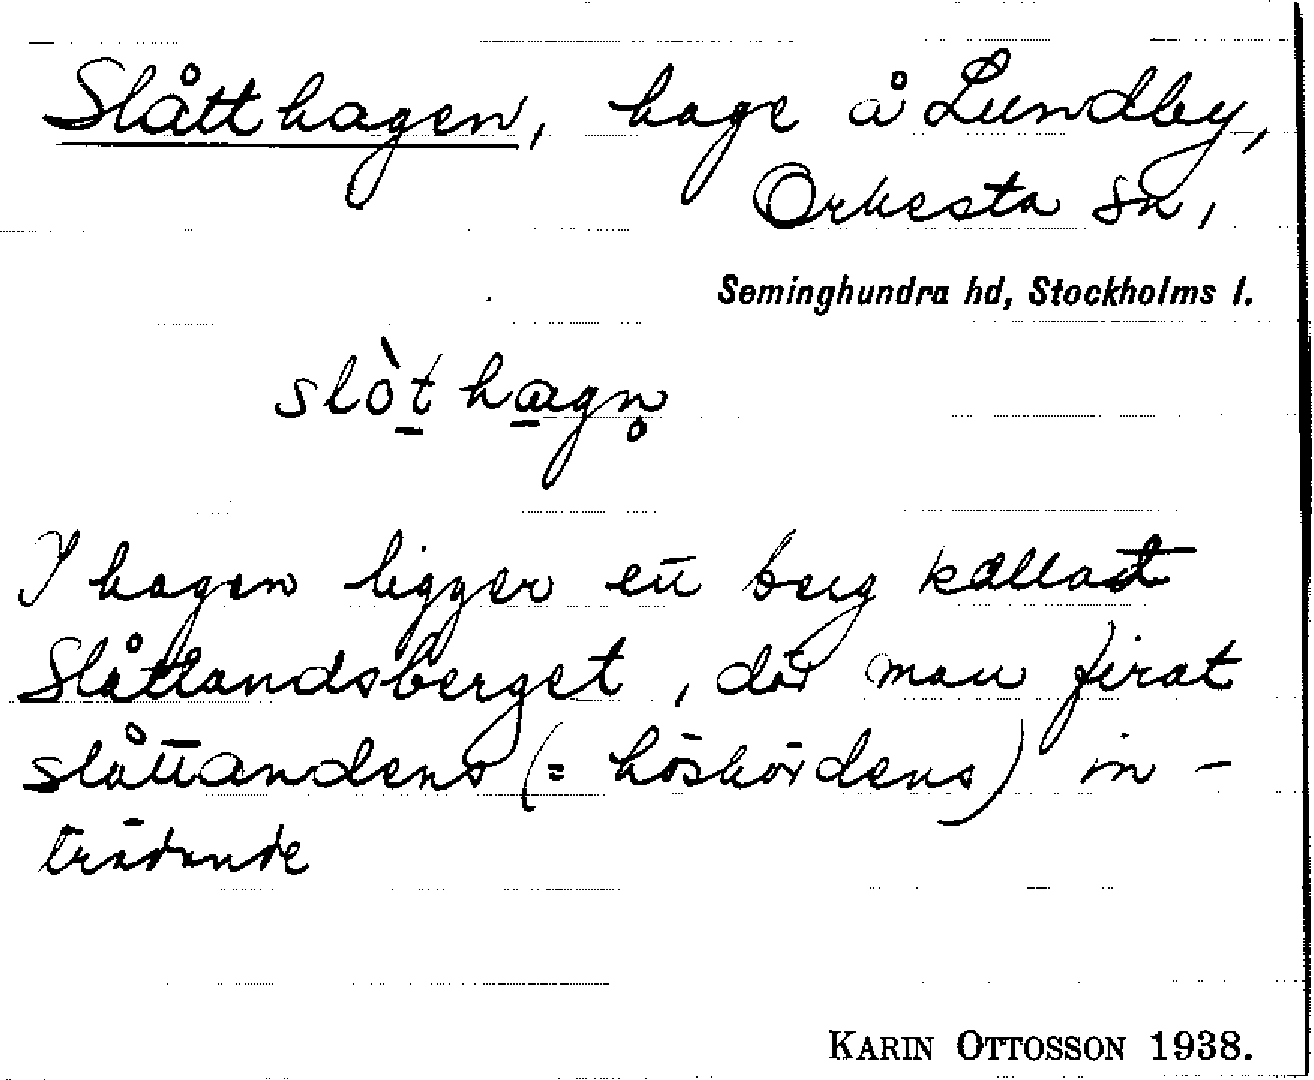 Slåtthagen, hage å Lundby,
Orkesta sn,
Seminghundra hd, Stockholms l.
slòt hagn̥
I hagen ligger ett berg kallat
Slåttandsberget, där man firat
slåttandens (= höskördens) in-
trädande
KARIN OTTOSSON 1938.